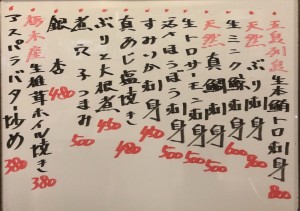 五島列島 生本鮪トロ刺身 800
天然 ぶり刺身
生ミンク鯨刺身 600
天然 真鯛刺身 500
生トロサーモン刺身 500
活〆ほうぼう刺身
すみいか刺身 480
真あじ塩焼き 480
ぶりと大根煮
煮穴子つまみ 500
銀杏 480
栃木産 生椎茸ホイル焼き 380
アスパラバター炒め 380